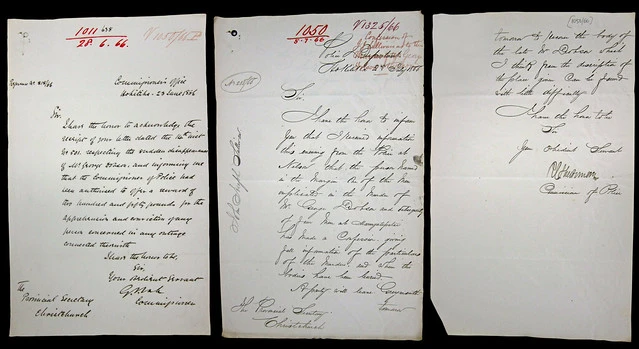 1011
28. 6. 66.
Commissioner's Office
Hokitika - 23 June 1866
Sir
I have the honor to acknowledge the
receipt of your letter dated the
respecting the sudden disappearance
of Mr George Dobson, and informing me
that the Commissioner of Police had
been authorised to offer a reward of
two hundred and fifty pounds for the
apprehension and conviction of any
person concerned in any outrage
connected therewith
I have the honor to be,
Sir,
Your obedient Servant
Commissioner
The
Provincial Secretary
Christchurch
1050
5-7-66
V1325/66
Confession of
Police
Hokitika 2nd July 1866
Sir,
I have the honor to inform
you that I received information
this evening from the Police at
Nelson that the person named
in the Margin one of the Men
implicated in the Murder of
Mr George Dobson and
of four Men at
has made a Confession giving
full information of the particulars
of the Murder, and where the
Bodies have been buried.
A party will leave Greymouth
The Provincial Secretary
Christchurch
tomorrow
tomorrow to search the body of
the late Mr Dobson which
I think from the description of
the place given can be found
with little difficulty.
I have the honor to be
Sir
Your Obedient Servant
Commissioner of Police